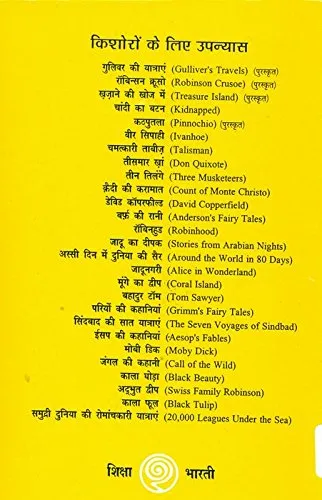 किशोरों के लिए उपन्यास
गुलिवर की यात्राएं (Gulliver's Travels) (पुरस्कृत)
रॉबिन्सन क्रूसो (Robinson Crusoe) (पुरस्कृत)
खज़ाने की खोज में (Treasure Island) (पुरस्कृत)
चांदी का बटन (Kidnapped)
कठपुतला (Pinnochio) (पुरस्कृत)
वीर सिपाही (Ivanhoe)
चमत्कारी तावीज़ (Talisman)
तीसमार खां (Don Quixote)
तीन तिलंगे (Three Musketeers)
क़ैदी की करामात (Count of Monte Christo)
डेविड कॉपरफ़ील्ड (David Copperfield)
बर्फ़ की रानी (Anderson's Fairy Tales)
रॉबिनहुड (Robinhood)
जादू का दीपक (Stories from Arabian Nights)
अस्सी दिन में दुनिया की सैर (Around the World in 80 Days)
जादूनगरी (Alice in Wonderland)
मूंगे का द्वीप (Coral Island)
बहादुर टॉम (Tom Sawyer)
परियों की कहानियां (Grimm's Fairy Tales)
सिंदबाद की सात यात्राएं (The Seven Voyages of Sindbad)
ईसप की कहानियां (Aesop's Fables)
मोबी डिक (Moby Dick)
जंगल की कहानी (Call of the Wild)
काला घोड़ा (Black Beauty)
अद्भुत द्वीप (Swiss Family Robinson)
काला फूल (Black Tulip)
समुद्री दुनिया की रोमांचकारी यात्राएं (20,000 Leagues Under the Sea)
शिक्षा भारती